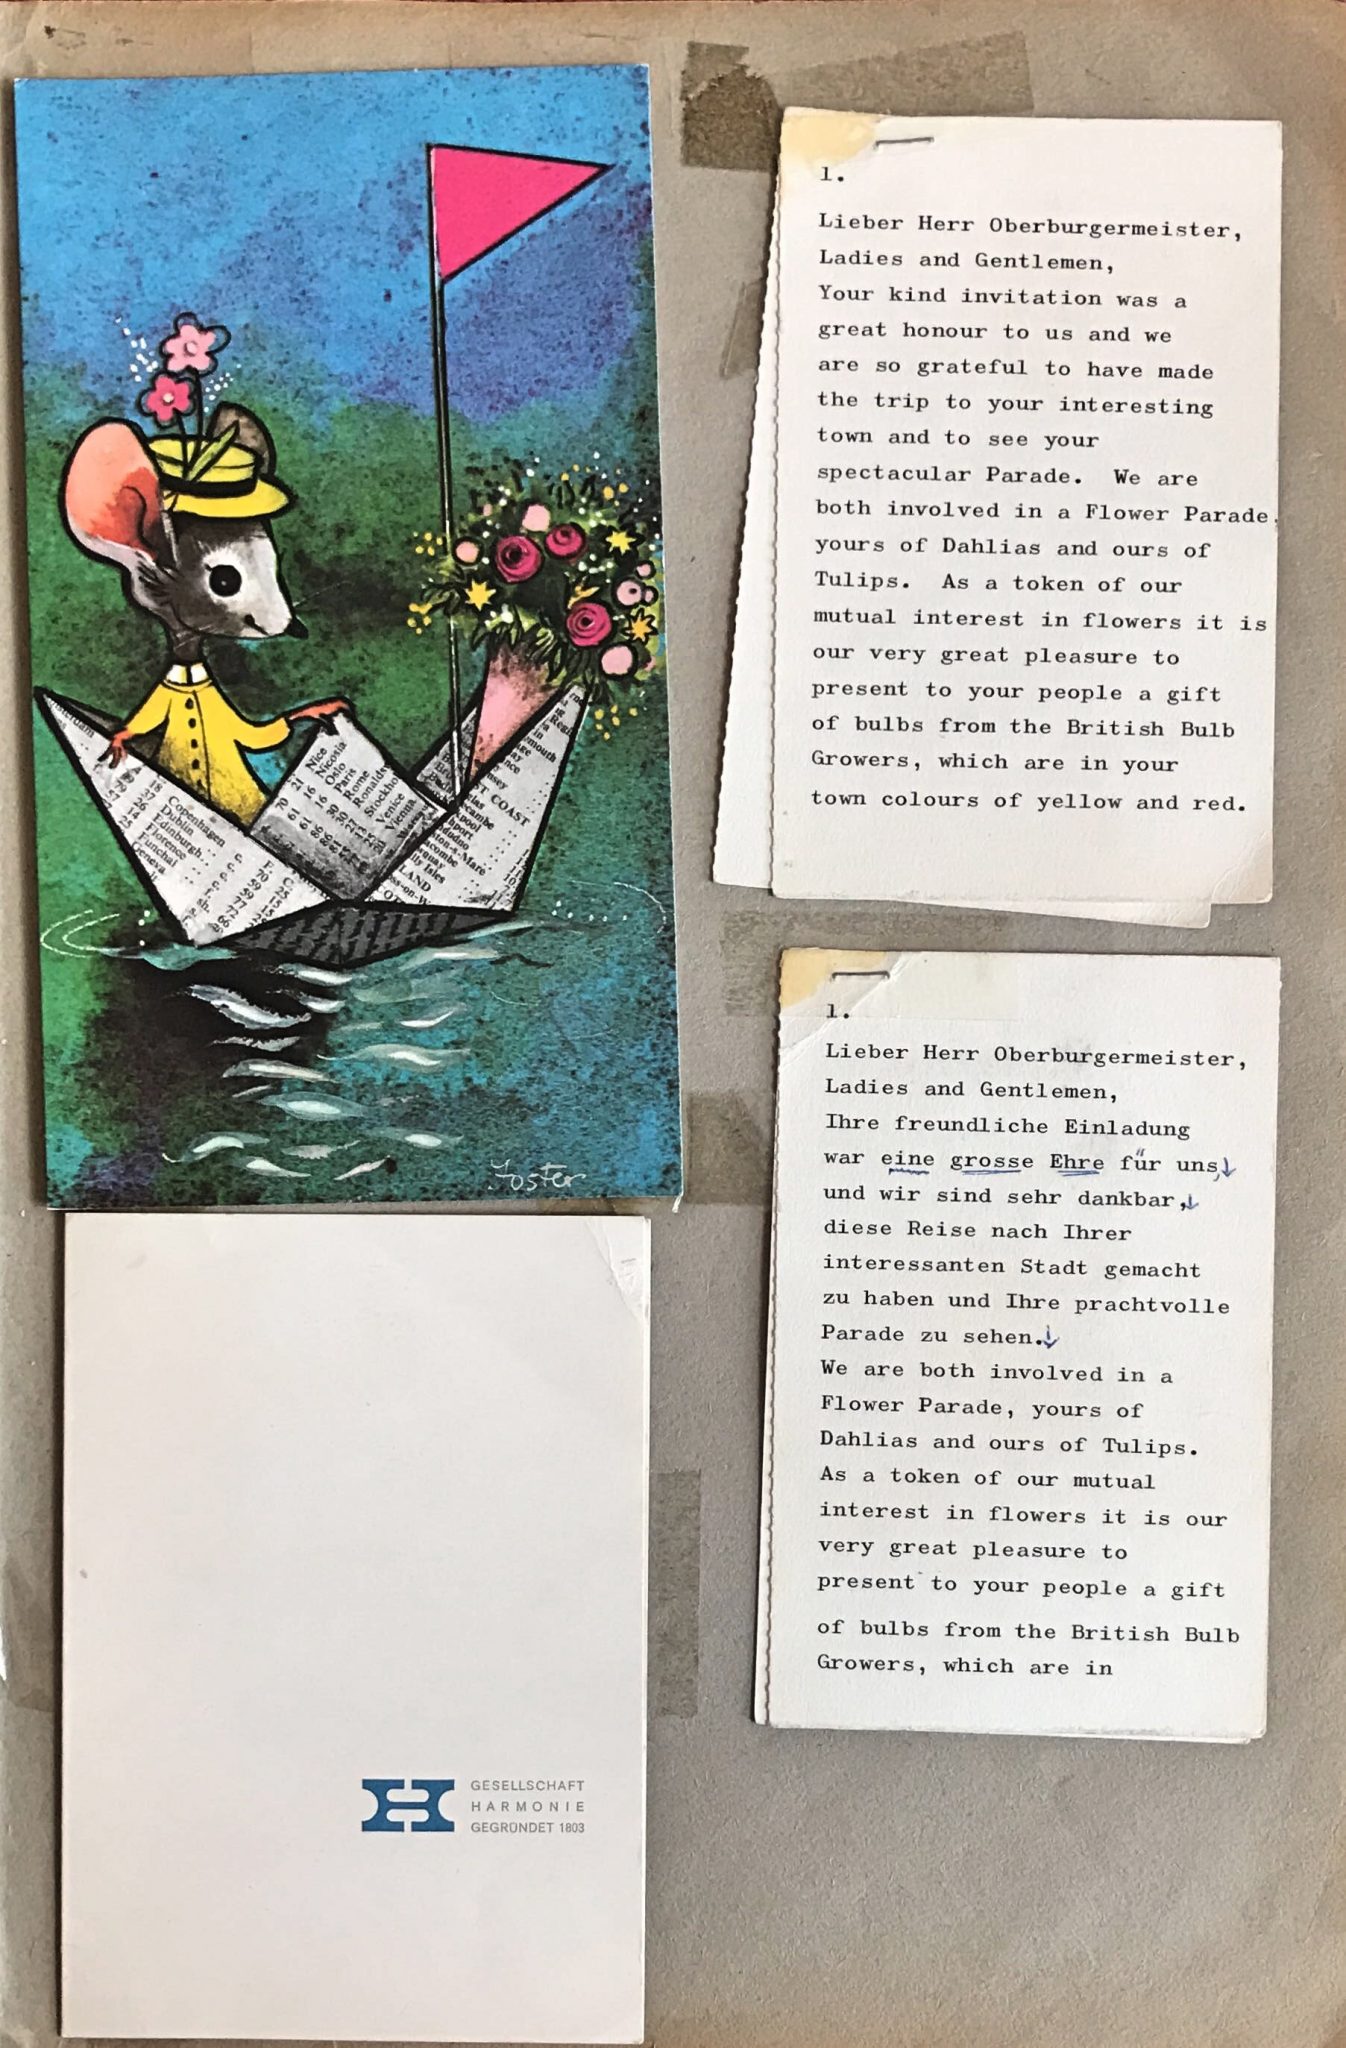 1.
Lieber Herr Oberburgermeister,
Ladies and Gentlemen,
Your kind invitation was a
great honour to us and we
are so grateful to have made
the trip to your interesting
town and to see your
spectacular Parade.  We are
both involved in a Flower Parade,
yours of Dahlias and ours of
Tulips.  As a token of our
mutual interest in flowers it is
our very great pleasure to
present to your people a gift
of bulbs from the British Bulb
Growers, which are in your
town colours of yellow and red.
1.
Lieber Herr Oberburgermeister,
Ladies and Gentlemen,
Ihre freundliche Einladung
war eine grosse Ehre für uns,
und wir sind sehr dankbar,
diese Reise nach Ihrer
interessanten Stadt gemacht
zu haben und Ihre prachtvolle
Parade zu sehen.
We are both involved in a
Flower Parade, yours of
Dahlias and ours of Tulips.
As a token of our mutual
interest in flowers it is our
very great pleasure to
present to your people a gift
of bulbs from the British Bulb
Growers, which are in
Copenhagen
Dublin
Edinburgh
Florence
Funchal
Geneva
Nice
Nicosia
Oslo
Paris
Rome
Ronalds
Stockho
Venice
Vienna
COAST
Foster
H
GESELLSCHAFT
HARMONIE
GEGRÜNDET 1803